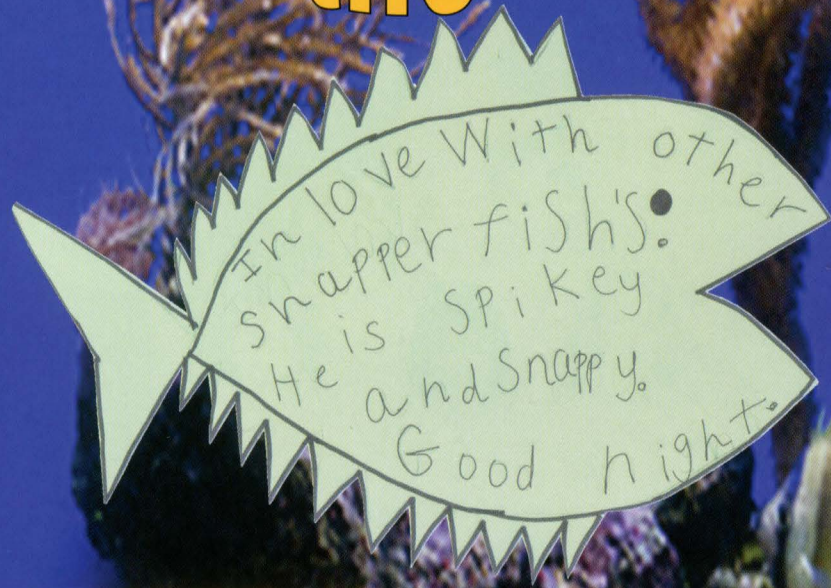 In love With other
snapper fish's.
He is spikey
and Snappy.
Good night.